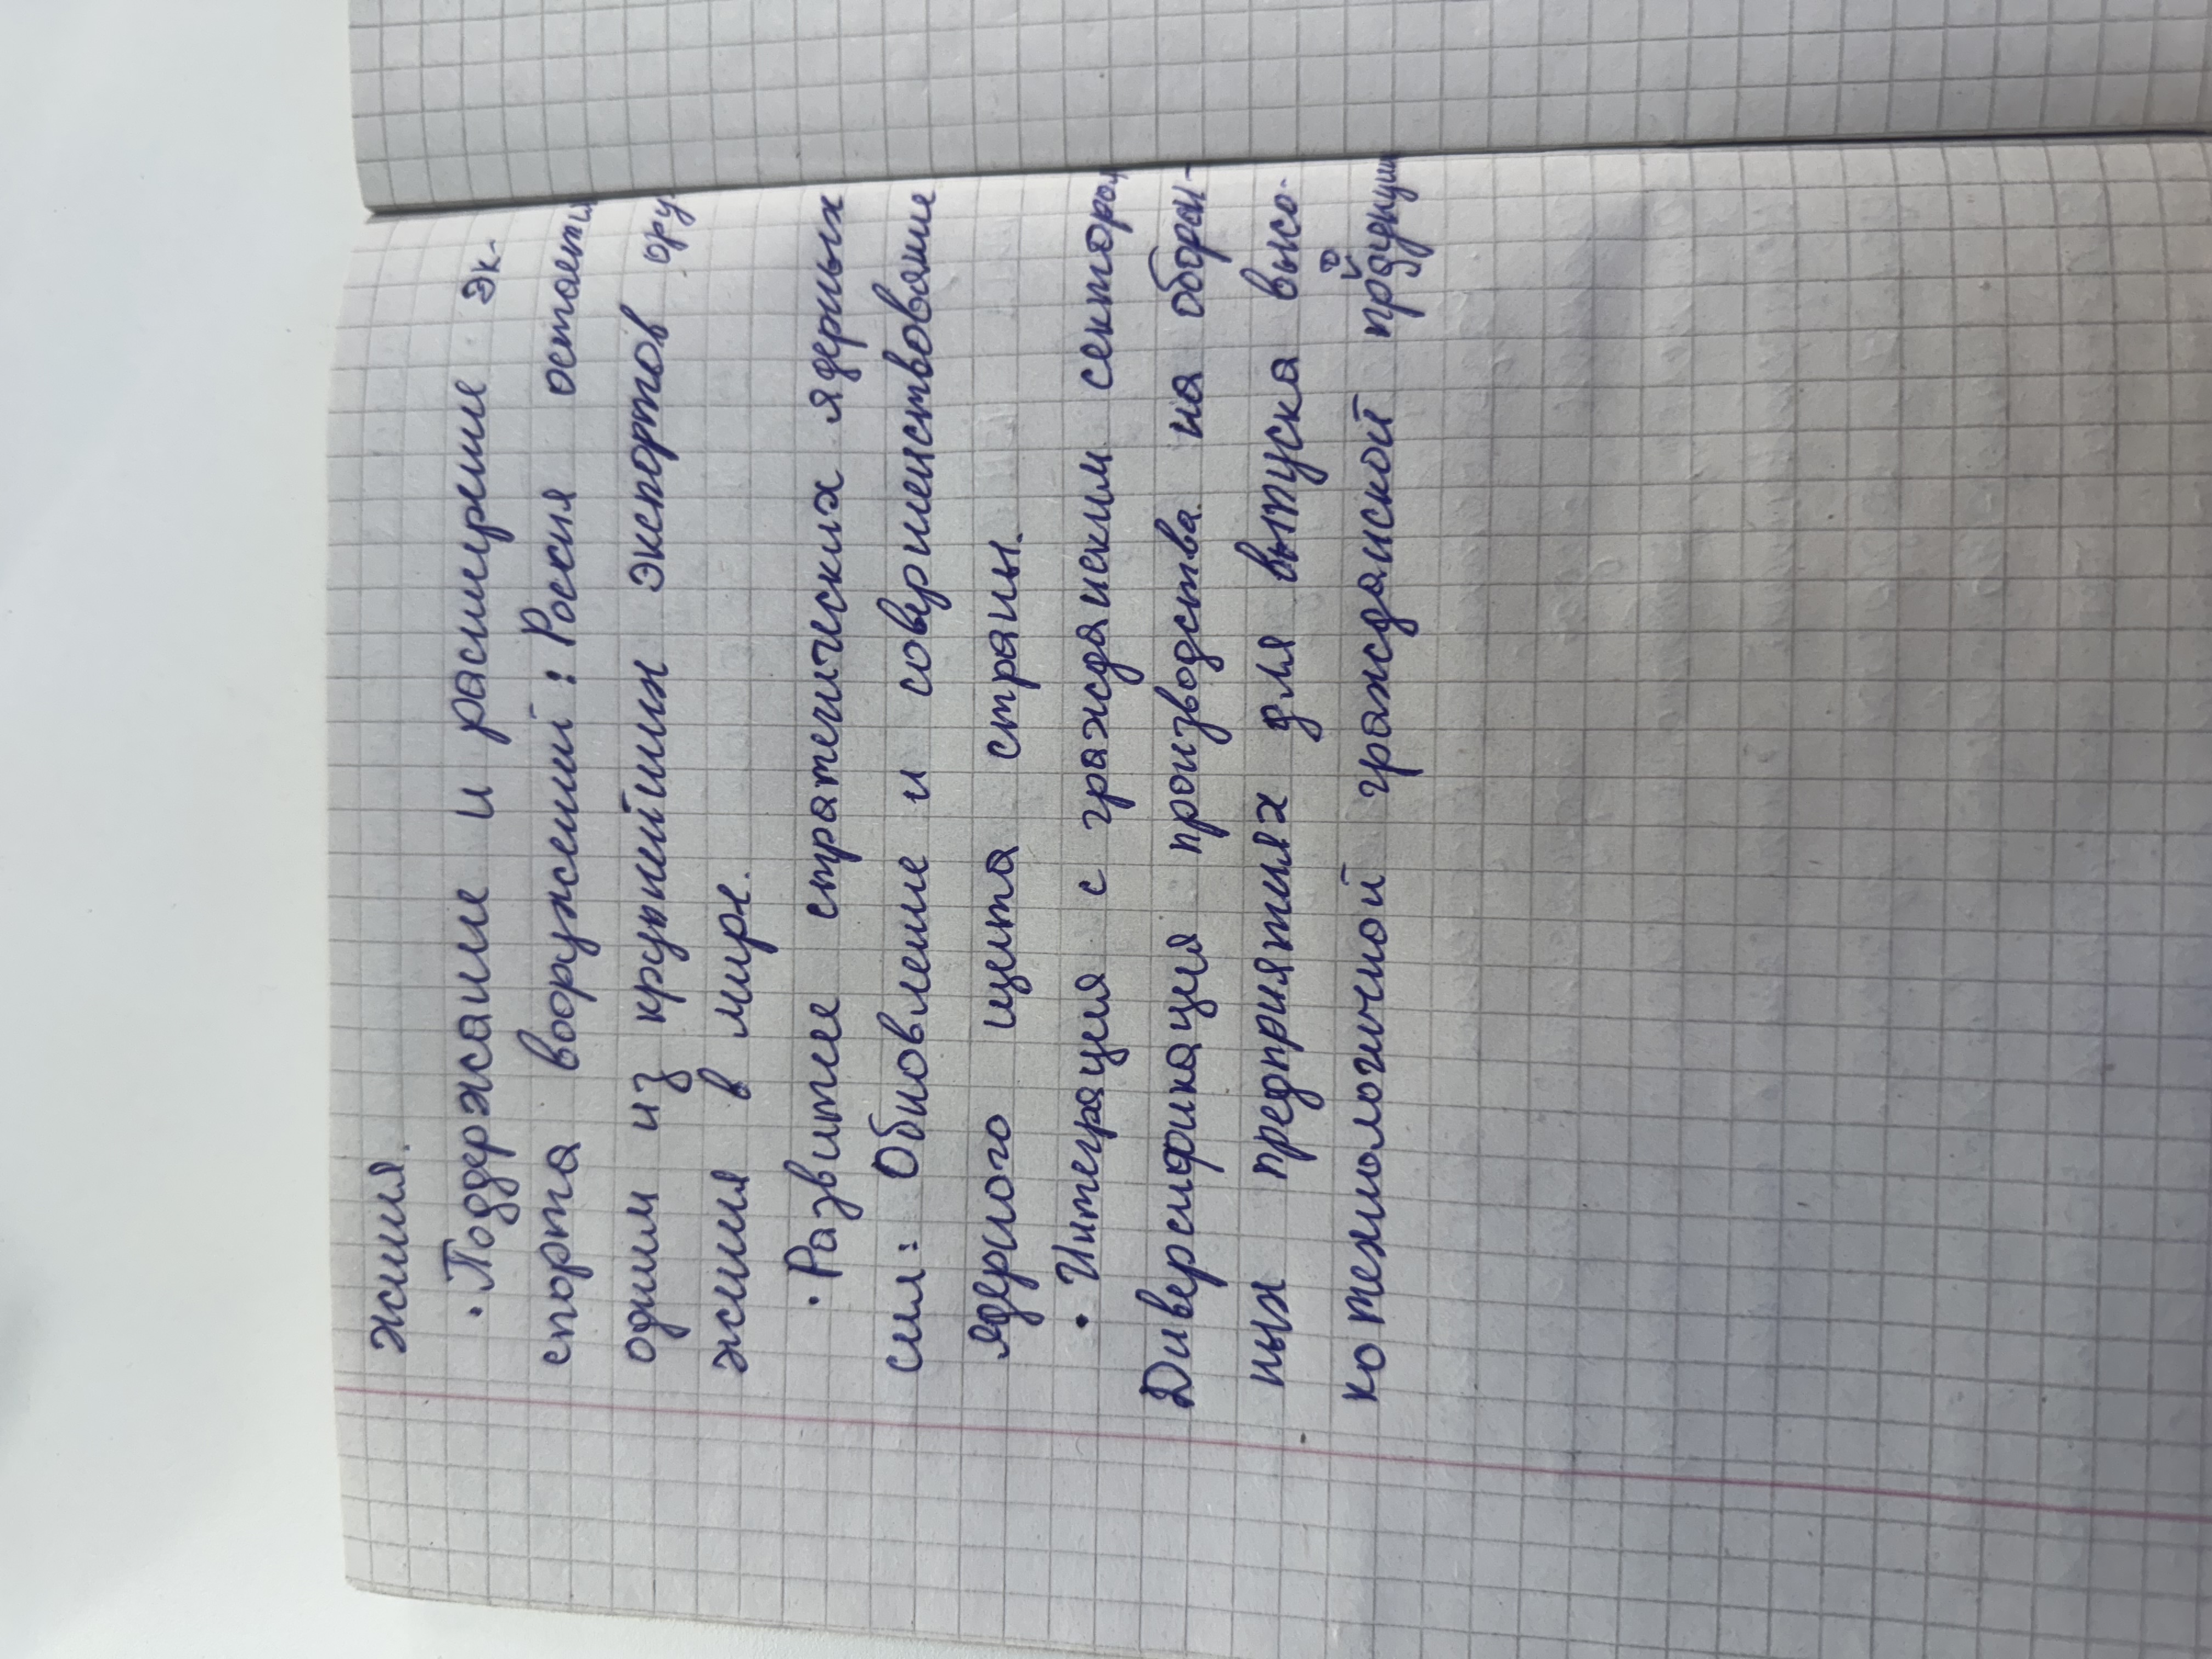 жения.
• Поддержание и расширение эк-
спорта вооружений: Россия остаётся
одним из крупнейших экспортов ору-
жения в мире.
• Развитее стратегических ядерных
сил: Обновление и совершенствование
ядерного щита страны.
• Интеграция с гражданским сектором
Диверсификация производства на оборон-
ных предприятиях для выпуска высо-
котехнологичной гражданской продукции